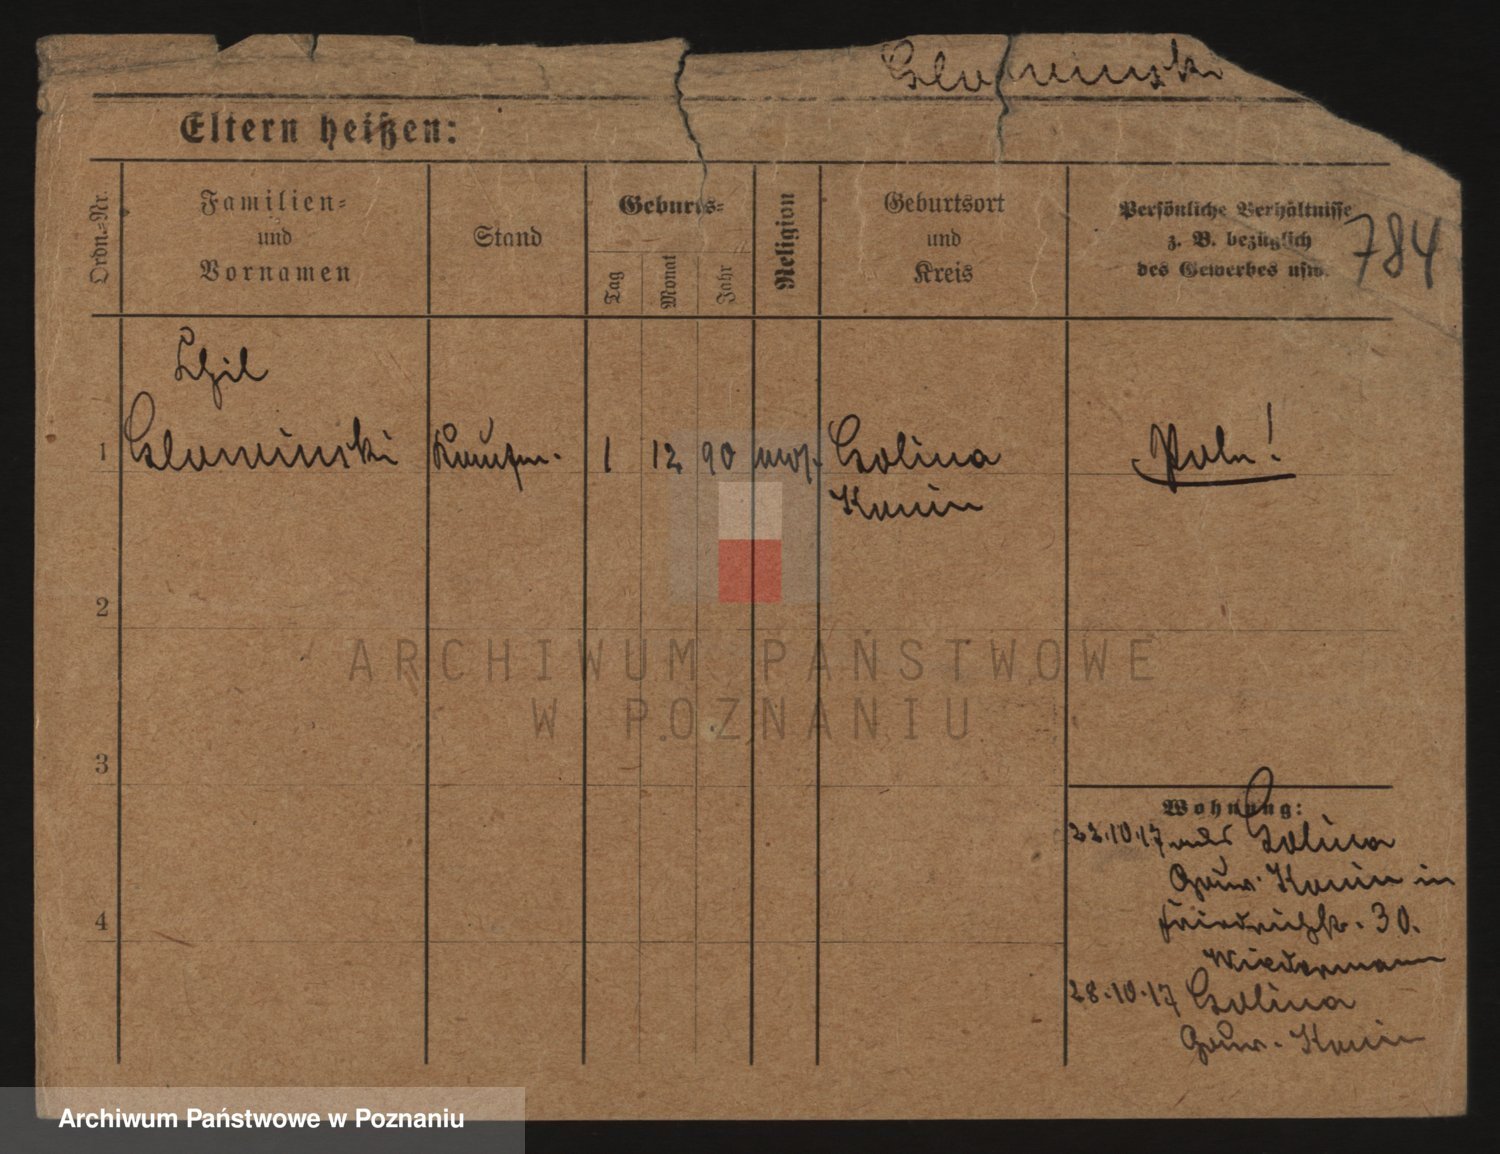 Glowinski
Eltern heißen:
Ordn.-Nr.
Familien-
und
Vornamen
Stand
Geburts-
Tag
Monat
Jahr
Religion
Geburtsort
und
Kreis
Persönliche Verhältnisse
z. B. bezüglich
des Gewerbes usw.
784
Chil
1 Glowinski Kaufm. 1 12 90 mos. Golina
Konin
Pole!
2
3
4
Wohnung:
22.10.17 aus Golina
Gouv. Konin in
Friedrichstr. 30.
Wiedermann
28.10.17 Golina
Gouv. Konin
ARCHIWUM PAŃSTWOWE
W POZNANIU
Archiwum Państwowe w Poznaniu